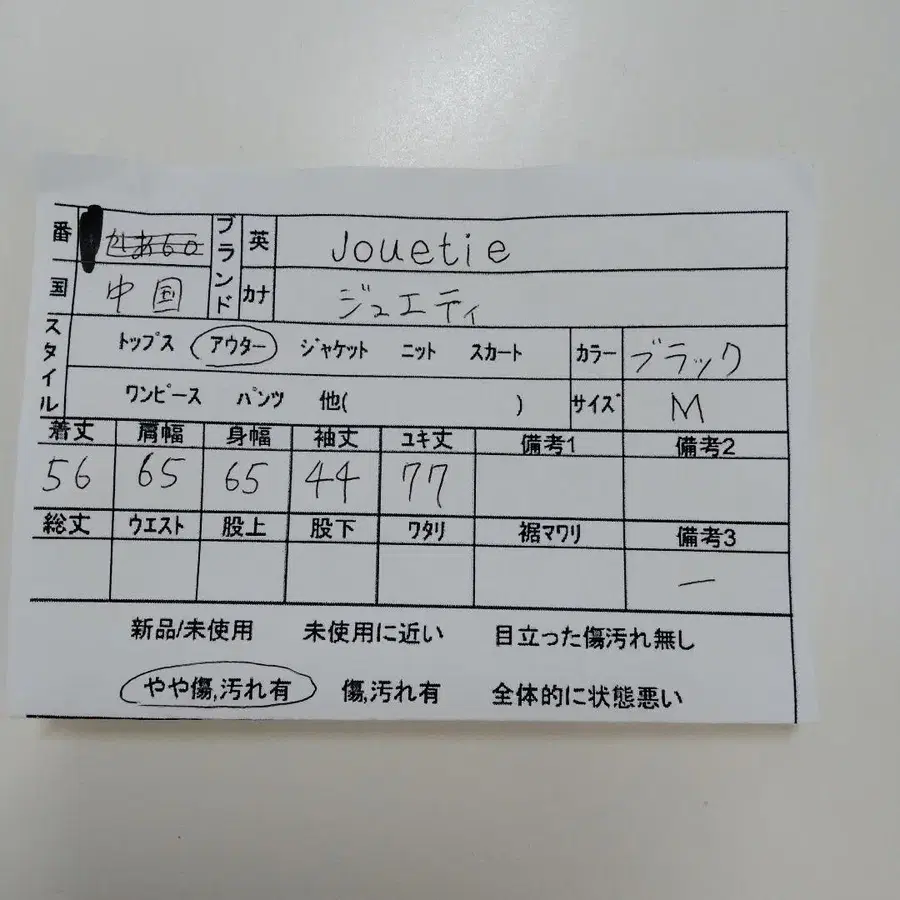 番 ブランド 英 Jouetie
国 中国 カナ ジュエティ
スタイル トップス アウター ジャケット ニット スカート カラー ブラック
ワンピース パンツ 他( ) サイズ M
着丈 肩幅 身幅 袖丈 ユキ丈 備考1 備考2
56 65 65 44 77
総丈 ウエスト 股上 股下 ワタリ 裾マワリ 備考3
ー
新品/未使用 未使用に近い 目立った傷汚れ無し
やや傷,汚れ有 傷,汚れ有 全体的に状態悪い